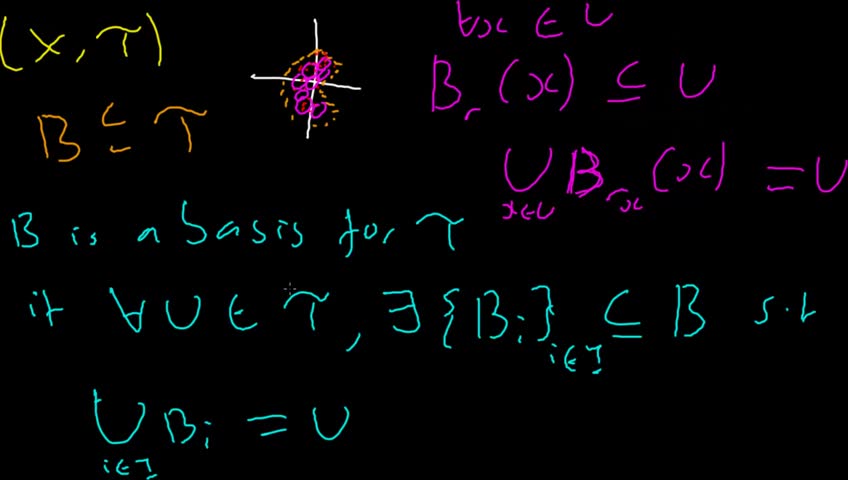 (X, τ)
B ⊆ τ
∀x ∈ U
B_r (x) ⊆ U
⋃_{x∈U} B_{r_x} (x) = U
B is a basis for τ
if ∀ U ∈ τ, ∃ {B_i}_{i∈I} ⊆ B s.t
⋃_{i∈I} B_i = U